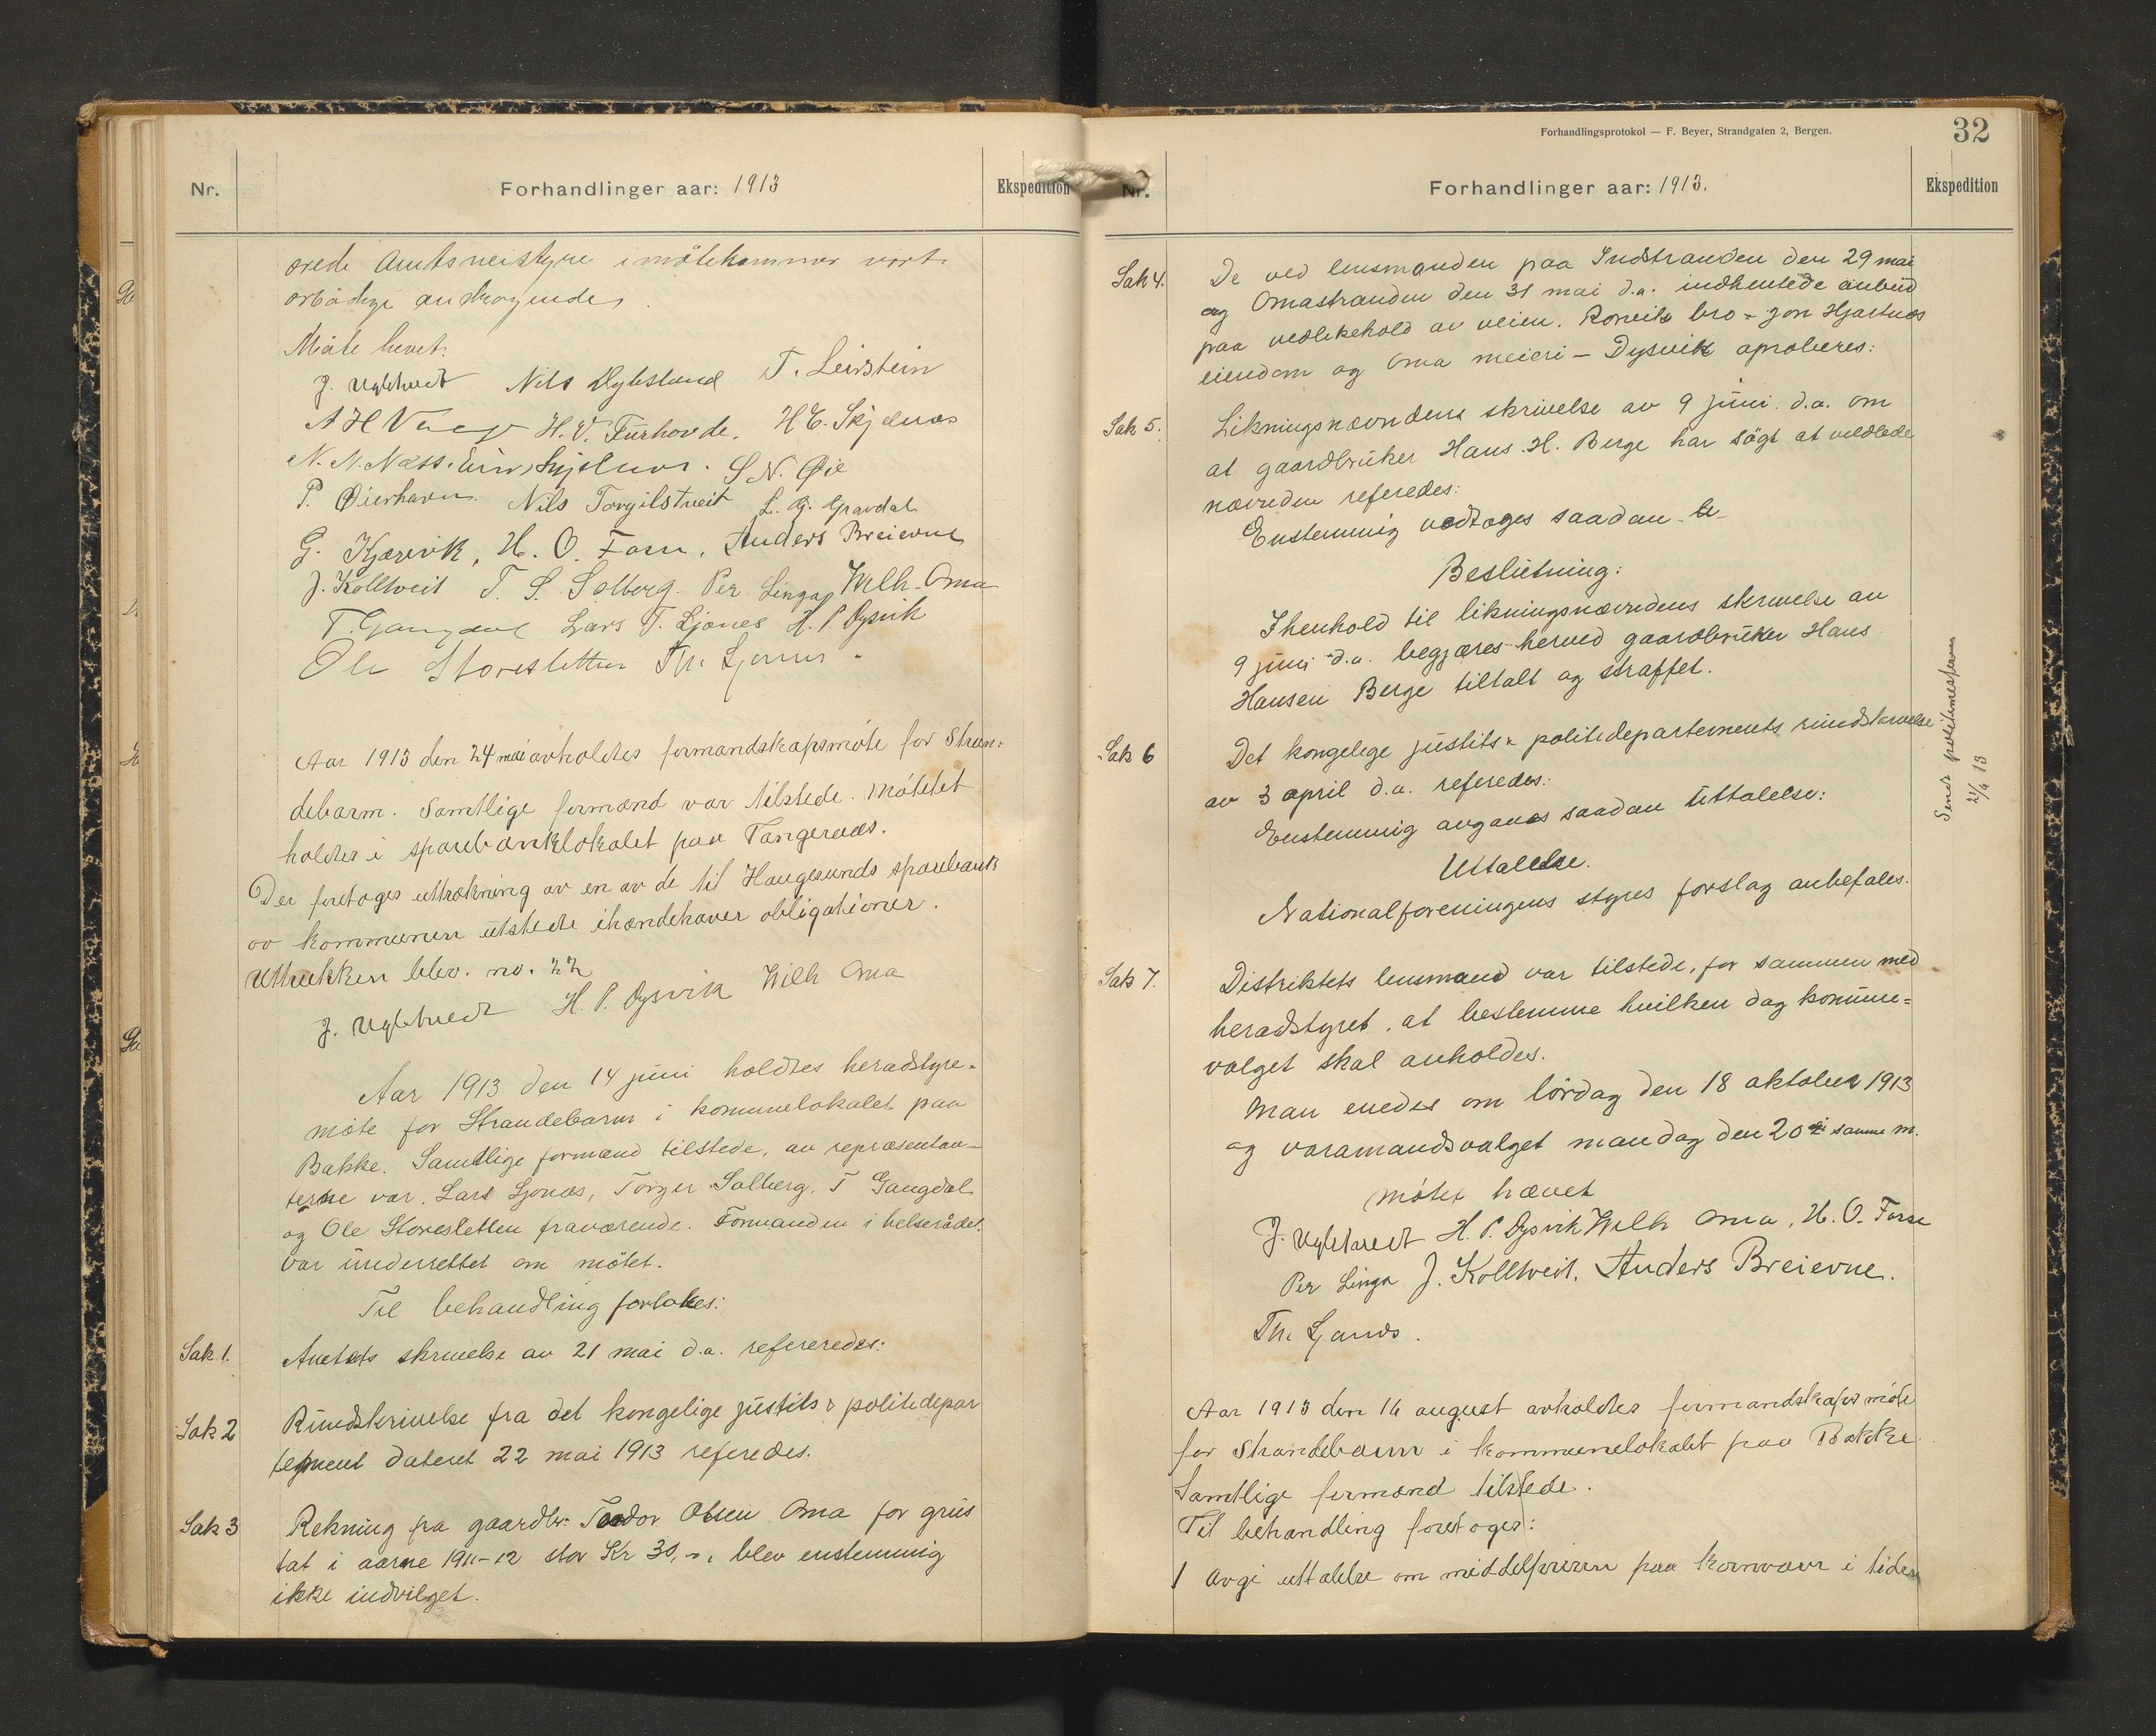 Nr.
Forhandlinger aar: 1913
Ekspedition
ærede Amtsveistyre imøtekommer vort
ærbødige andragende.
Møte hevet.
J. Ugletvedt Nils Dybsland T. Leirstein
H. V. Furhovde. H E. Skjelnæs
N. N. Næss. S. N. Øie
P. Øierhavn. Nils Torgilstveit L. G. Gravdal
G. Kjærevik, H. O. Fosse, Anders Breievne
J. Kolltveit T. S. Solberg. Per Linga, Wilh. Oma
T. Gangdal Lars T. Ljones H. P. Dysvik
Ole Storesletten Th. Ljones.
Aar 1913 den 24 mai avholdtes formandskapsmøte for Stran=
debarm. Samtlige formænd var tilstede. Møtetet
holdtes i sparebanklokalet paa Tangeraas.
Der foretoges uttrækning av en av de til Haugesunds sparebank
av kommunen utstedte ihændehaver obligationer.
Uttrukken blev. no. 22
J. Ugletvedt H. P. Dysvik Wilh Oma
Aar 1913 den 14 juni holdtes heradstyre=
møte for Strandebarm i komunelokalet paa
Bakke. Samtlige formænd tilstede, av repræsentan-
terne var. Lars Ljonæs, Torger Solberg, T Gangdal
og Ole Storesletten fraværende. Formanden i helserådet
var underrettet om møtet.
Til behandling fortokes:
Sak 1. Amtets skrivelse av 21 mai d.a. refereredes:
Sak 2 Rundskrivelse fra det kongelige justits & politidepar
tement dateret 22 mai 1913 referedes.
Sak 3 Rekning fra gaardbr. Teodor Olsen Oma for grus
tat i aarne 1911-12 stor Kr 30,-, blev enstemmig
ikke indvilget.
Forhandlingsprotokol — F. Beyer, Strandgaten 2, Bergen.
32
Nr.
Forhandlinger aar: 1913.
Ekspedition
Sak 4. De ved lensmanden paa Indstranden den 29 mai
og Omastranden den 31 mai d.a. indhentede anbud
paa vedlikehold av veien. Roneils bro - Jon Hjartnæs
eiendom og Oma meieri - Dysvik aproberes:
Sak 5. Likningsnævndens skrivelse av 9 juni d.a. om
at gaardbruker Hans H. Berge har søgt at vildlede
nævnden referedes:
Enstemmig vedtoges saadan
Beslutning:
Ihenhold til likningsnævndens skrivelse av
9 juni d.a. begjæres herved gaardbruker Hans
Hansen Berge tiltalt og straffet.
Sak 6 Det kongelige justits & politidepartements rundskrivelse
av 3 april d.a. referedes:
Enstemmig avgaves saadan Uttalelse:
Uttalelse.
Nationalforeningens styres forslag anbefales.
Sendt politimesteren
21/6 13
Sak 7. Distriktets lensmand var tilstede, for sammen med
heradstyret, at bestemme hvilken dag komune=
valget skal avholdes.
Man enedes om lørdag den 18 oktober 1913
og varamandsvalget mandag den 20 de samme m.
Møtet hævet
J. Ugletvedt H. P. Dysvik Wilh Oma, H. O. Fosse
Per Linga J. Kolltveit. Anders Breievne.
Th. Ljones.
Aar 1913 den 16 august avholdtes formandskapsmøte
for Strandebarm i kommunelokalet paa Bakke.
Samtlige formænd tilstede.
Til behandling foretoges:
1 Avgi uttalelse om middelprisen paa kornvarer i tiden